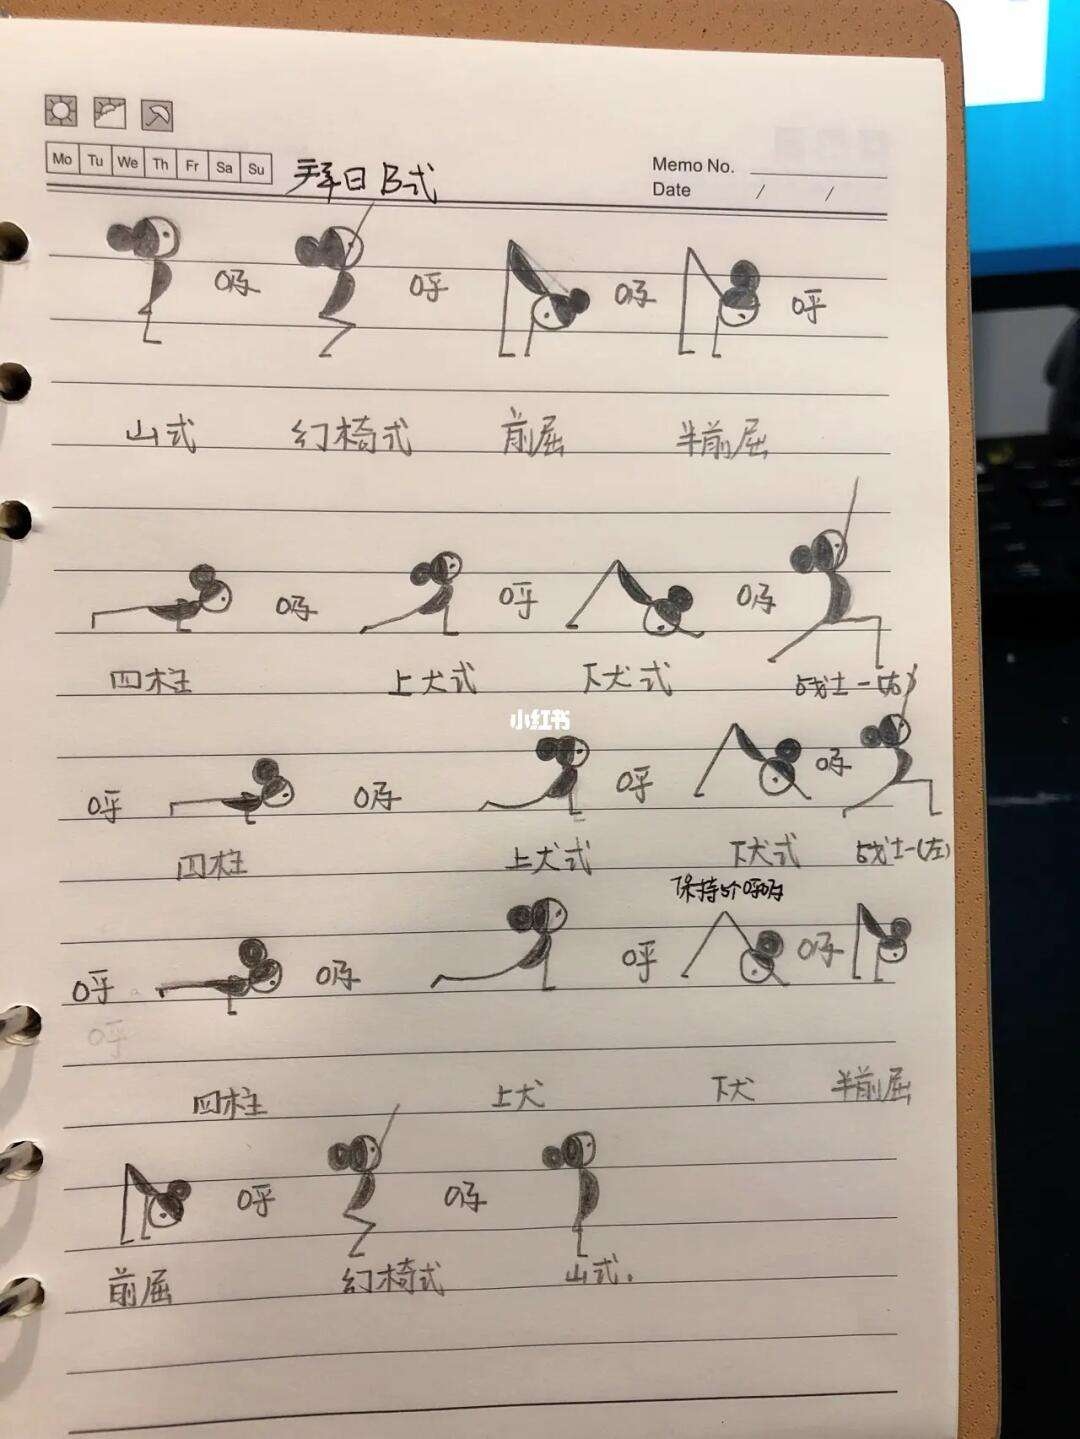 Mo Tu We Th Fr Sa Su
拜日B式
Memo No.
Date / /
吸 呼 吸 呼
山式 幻椅式 前屈 半前屈
吸 呼 吸
四柱 上犬式 下犬式 战士一(右)
小红书
呼 吸 呼 吸
四柱 上犬式 下犬式 战士一(左)
保持5个呼吸
呼 吸 呼 吸
呼
四柱 上犬 下犬 半前屈
呼 吸
前屈 幻椅式 山式.